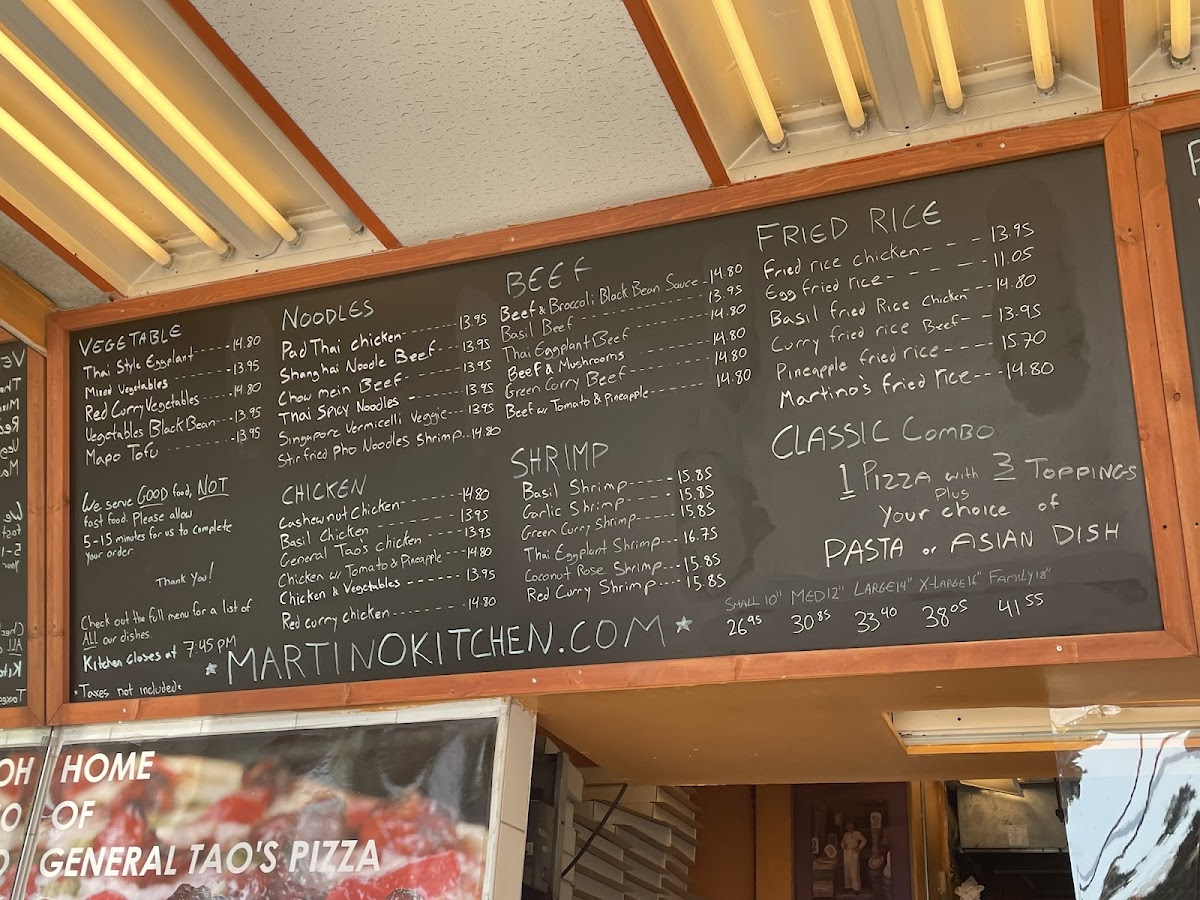 VEGETABLE
Thai Style Eggplant ----- 14.80
Mixed Vegetables ------- 13.95
Red Curry Vegetables ---- 14.80
Vegetables Black Bean --- 13.95
Mapo Tofu ------- 13.95
We serve GOOD food, NOT
fast food. Please allow
5-15 minutes for us to complete
your order.
Thank you!
Check out the full menu for a list of
ALL our dishes.
Kitchen closes at 7:45 PM
*Taxes not included*
NOODLES
Pad Thai chicken ------- 13.95
Shanghai Noodle Beef --- 13.95
Chow mein Beef ------- 13.95
Thai Spicy Noodles ------ 13.95
Singapore Vermicelli Veggie --- 13.95
Stir fried Pho Noodles Shrimp -- 14.80
CHICKEN
Cashewnut Chicken ------- 14.80
Basil Chicken -------- 13.95
General Tao's chicken ---- 13.95
Chicken w/ Tomato & Pineapple --- 14.80
Chicken & Vegetables ------ 13.95
Red curry chicken ------- 14.80
BEEF
Beef & Broccoli Black Bean Sauce -- 14.80
Basil Beef -------- 13.95
Thai Eggplant Beef ------- 14.80
Beef & Mushrooms ------- 14.80
Green Curry Beef ------- 14.80
Beef w/ Tomato & Pineapple ------ 14.80
SHRIMP
Basil Shrimp ----- 15.85
Garlic Shrimp ----- 15.85
Green Curry Shrimp ---- 15.85
Thai Eggplant Shrimp --- 16.75
Coconut Rose Shrimp --- 15.85
Red Curry Shrimp --- 15.85
FRIED RICE
Fried rice chicken - - - - 13.95
Egg fried rice - - - - - - 11.05
Basil fried Rice Chicken --- 14.80
Curry fried rice Beef --- 13.95
Pineapple fried rice ---- 15.70
Martino's fried rice --- 14.80
CLASSIC COMBO
1 PIZZA with 3 TOPPINGS
Plus
Your choice of
PASTA or ASIAN DISH
SMALL 10" MED 12" LARGE 14" X-LARGE 16" FAMILY 18"
26.95 30.85 33.40 38.05 41.55
*MARTINOKITCHEN.COM*
HOME
OF
GENERAL TAO'S PIZZA